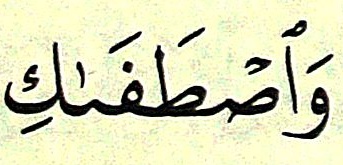 وَٱصۡطَفَىٰكِ